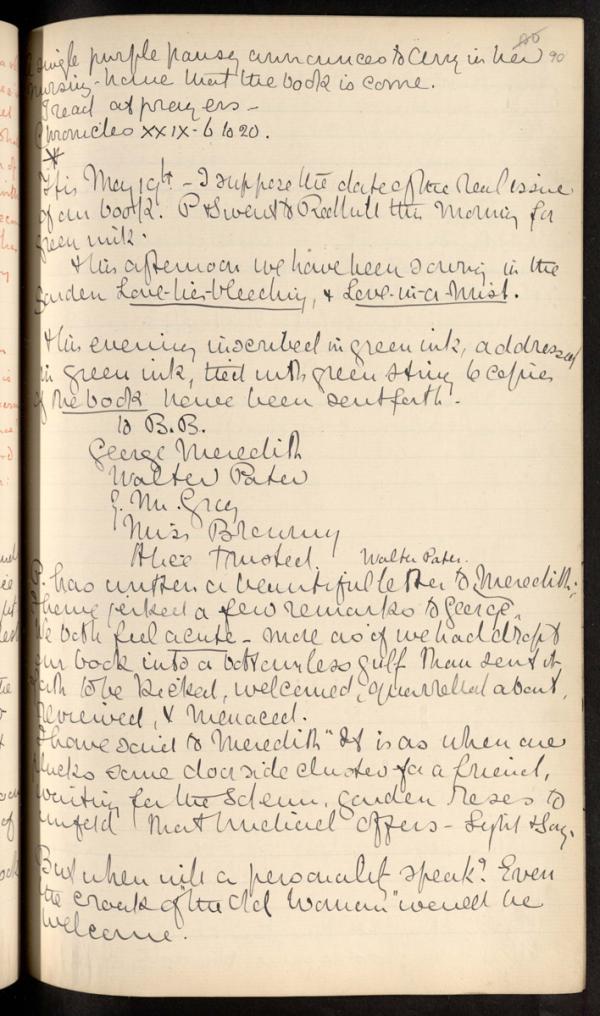 A single purple pansy announces to Amy in her 90
nursing-home that the book is come.
I read at prayers –
Chronicles XXIX - 6 to 20.
*
It is May 19th – I suppose the date of the real issue
of our book. P & I went to Redhill this Morning for
green ink.
& this afternoon we have been sowing in the
garden Love-lies-bleeding, & Love-in-a-Mist.
& this evening inscribed in green ink, addressed
in green ink, tied with green string 6 copies
of the book have been sent forth.
to B.B.
George Meredith
Walter Pater
E. M. Gray
Miss Browning
Alice Trusted. Walter Pater.
P. has written a beautiful letter to Meredith;
I having jerked a few remarks to George.
We both feel acute – more as if we had dropt
our book into a bottomless gulf than sent it
forth to be kicked, welcomed, quarrelled about,
reviewed, & menaced.
I have said to Meredith "It is as when one
plucks some doorside cluster for a friend,
waiting for the solemn, garden roses to
unfold that Michael offers –
But when will a personality speak? Even
the croak of the "old Woman" would be
welcome.